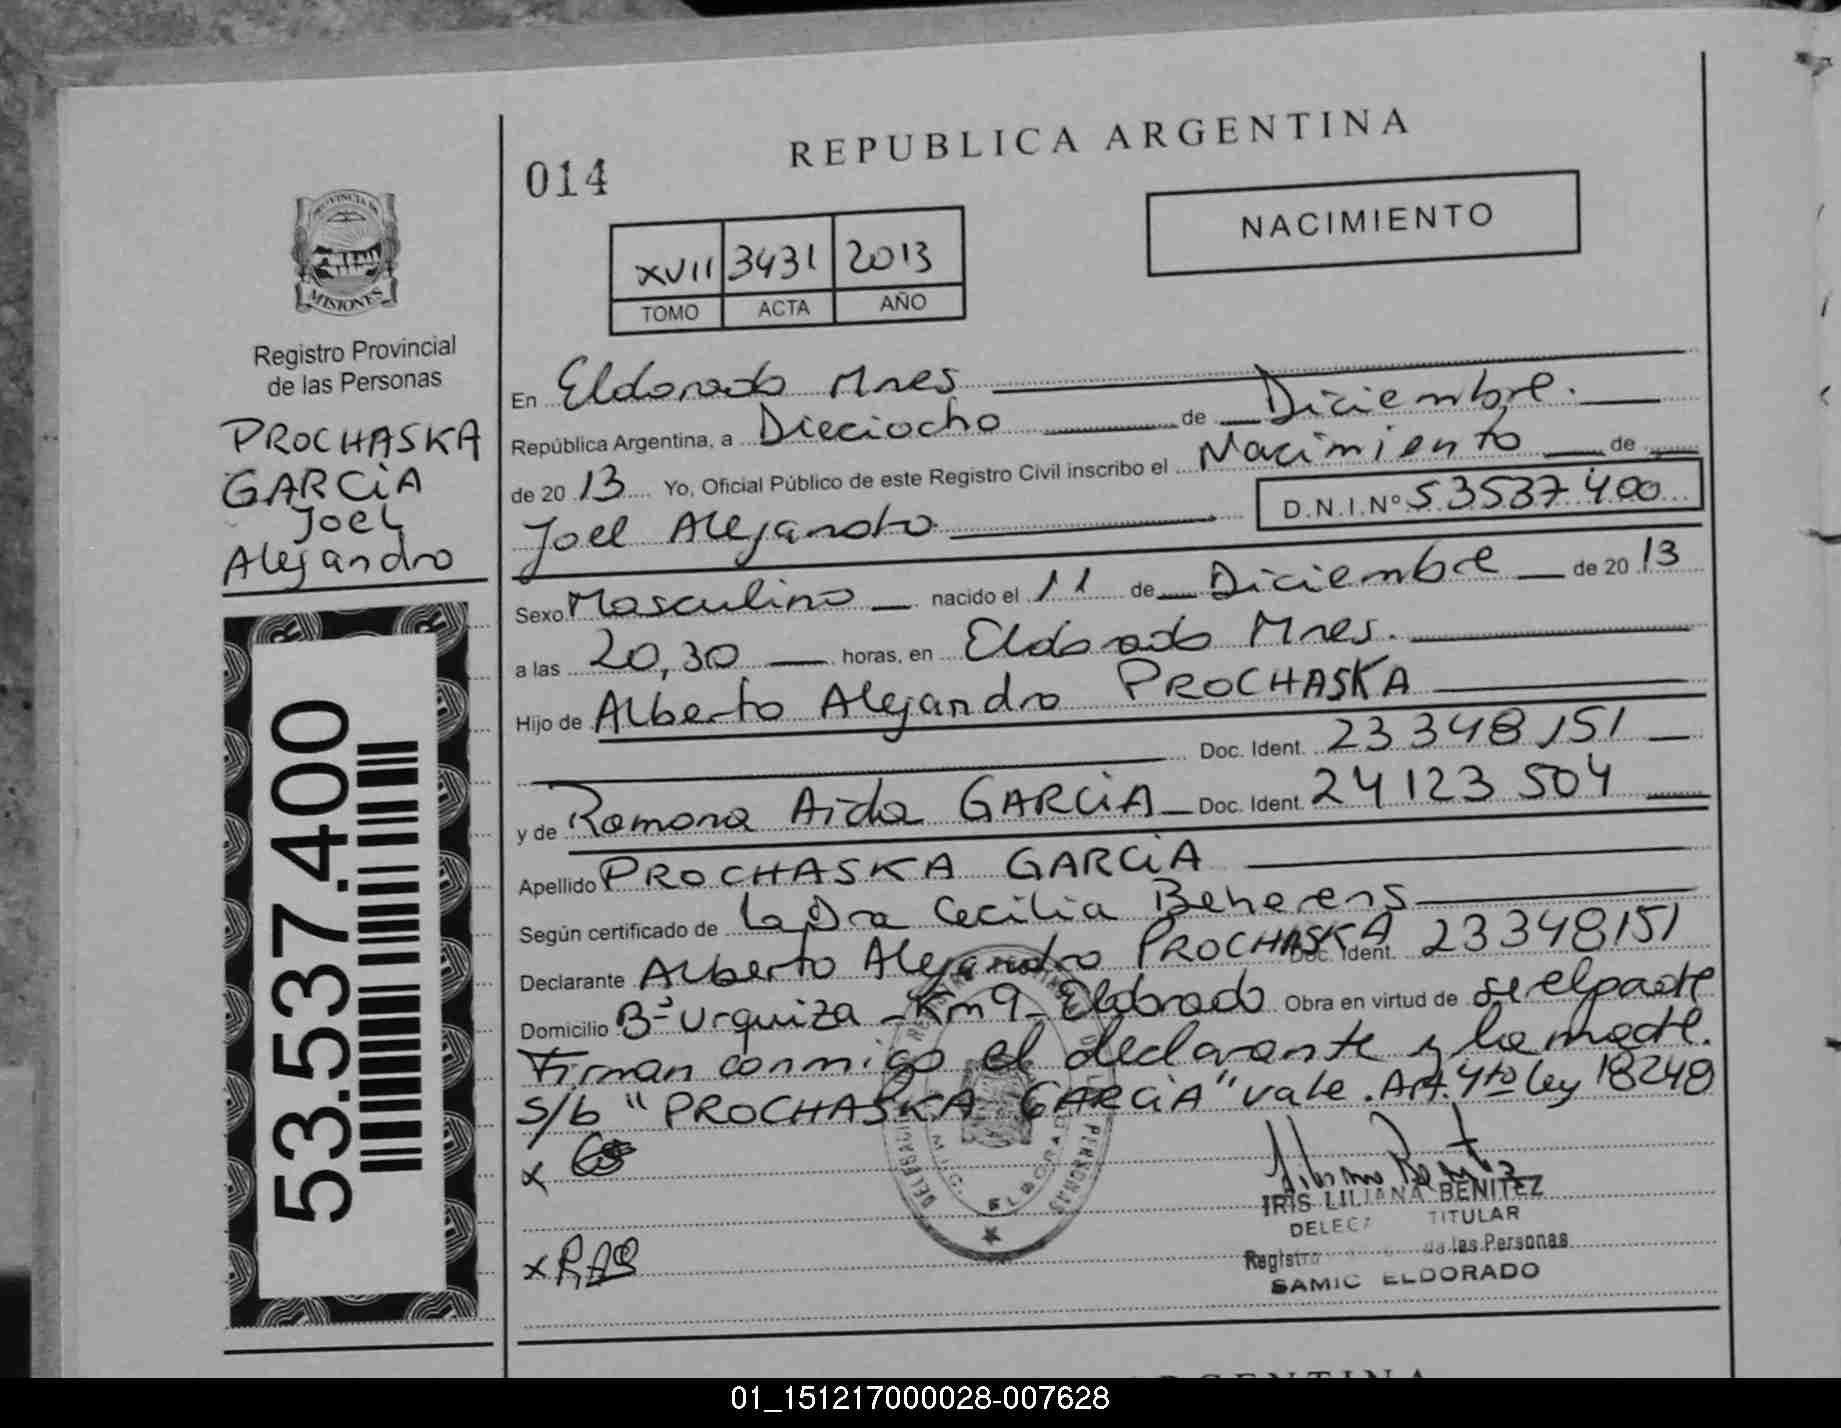 REPUBLICA ARGENTINA
014
NACIMIENTO
XVII 3431 2013
TOMO ACTA AÑO
PROVINCIA DE
MISIONES
Registro Provincial
de las Personas
PROCHASKA
GARCiA
Joel
Alejandro
53.537.400
En Eldorado Mnes
República Argentina, a Dieciocho de Diciembre.
de 20 13 Yo, Oficial Público de este Registro Civil inscribo el Nacimiento de
Joel Alejandro D.N.I.Nº 53537400
Sexo Masculino nacido el 11 de Diciembre de 20 13
a las 20,30 horas, en Eldorado Mnes.
Hijo de Alberto Alejandro PROCHASKA
Doc. Ident. 23348151
y de Ramona Aida GARCiA Doc. Ident. 24123504
Apellido PROCHASKA GARCiA
Según certificado de la Dra Cecilia Beherens
Declarante Alberto Alejandro PROCHASKA Doc. Ident. 23348151
Domicilio Bº Urquiza - Km 9 - Eldorado Obra en virtud de ser el padre
Firman conmigo el declarante y la madre.
S/b "PROCHASKA GARCiA" vale. Art. 4to ley 18248
x
x RAG
IRIS LILIANA BENITEZ
TITULAR
Registro de las Personas
SAMIC ELDORADO
01_151217000028-007628